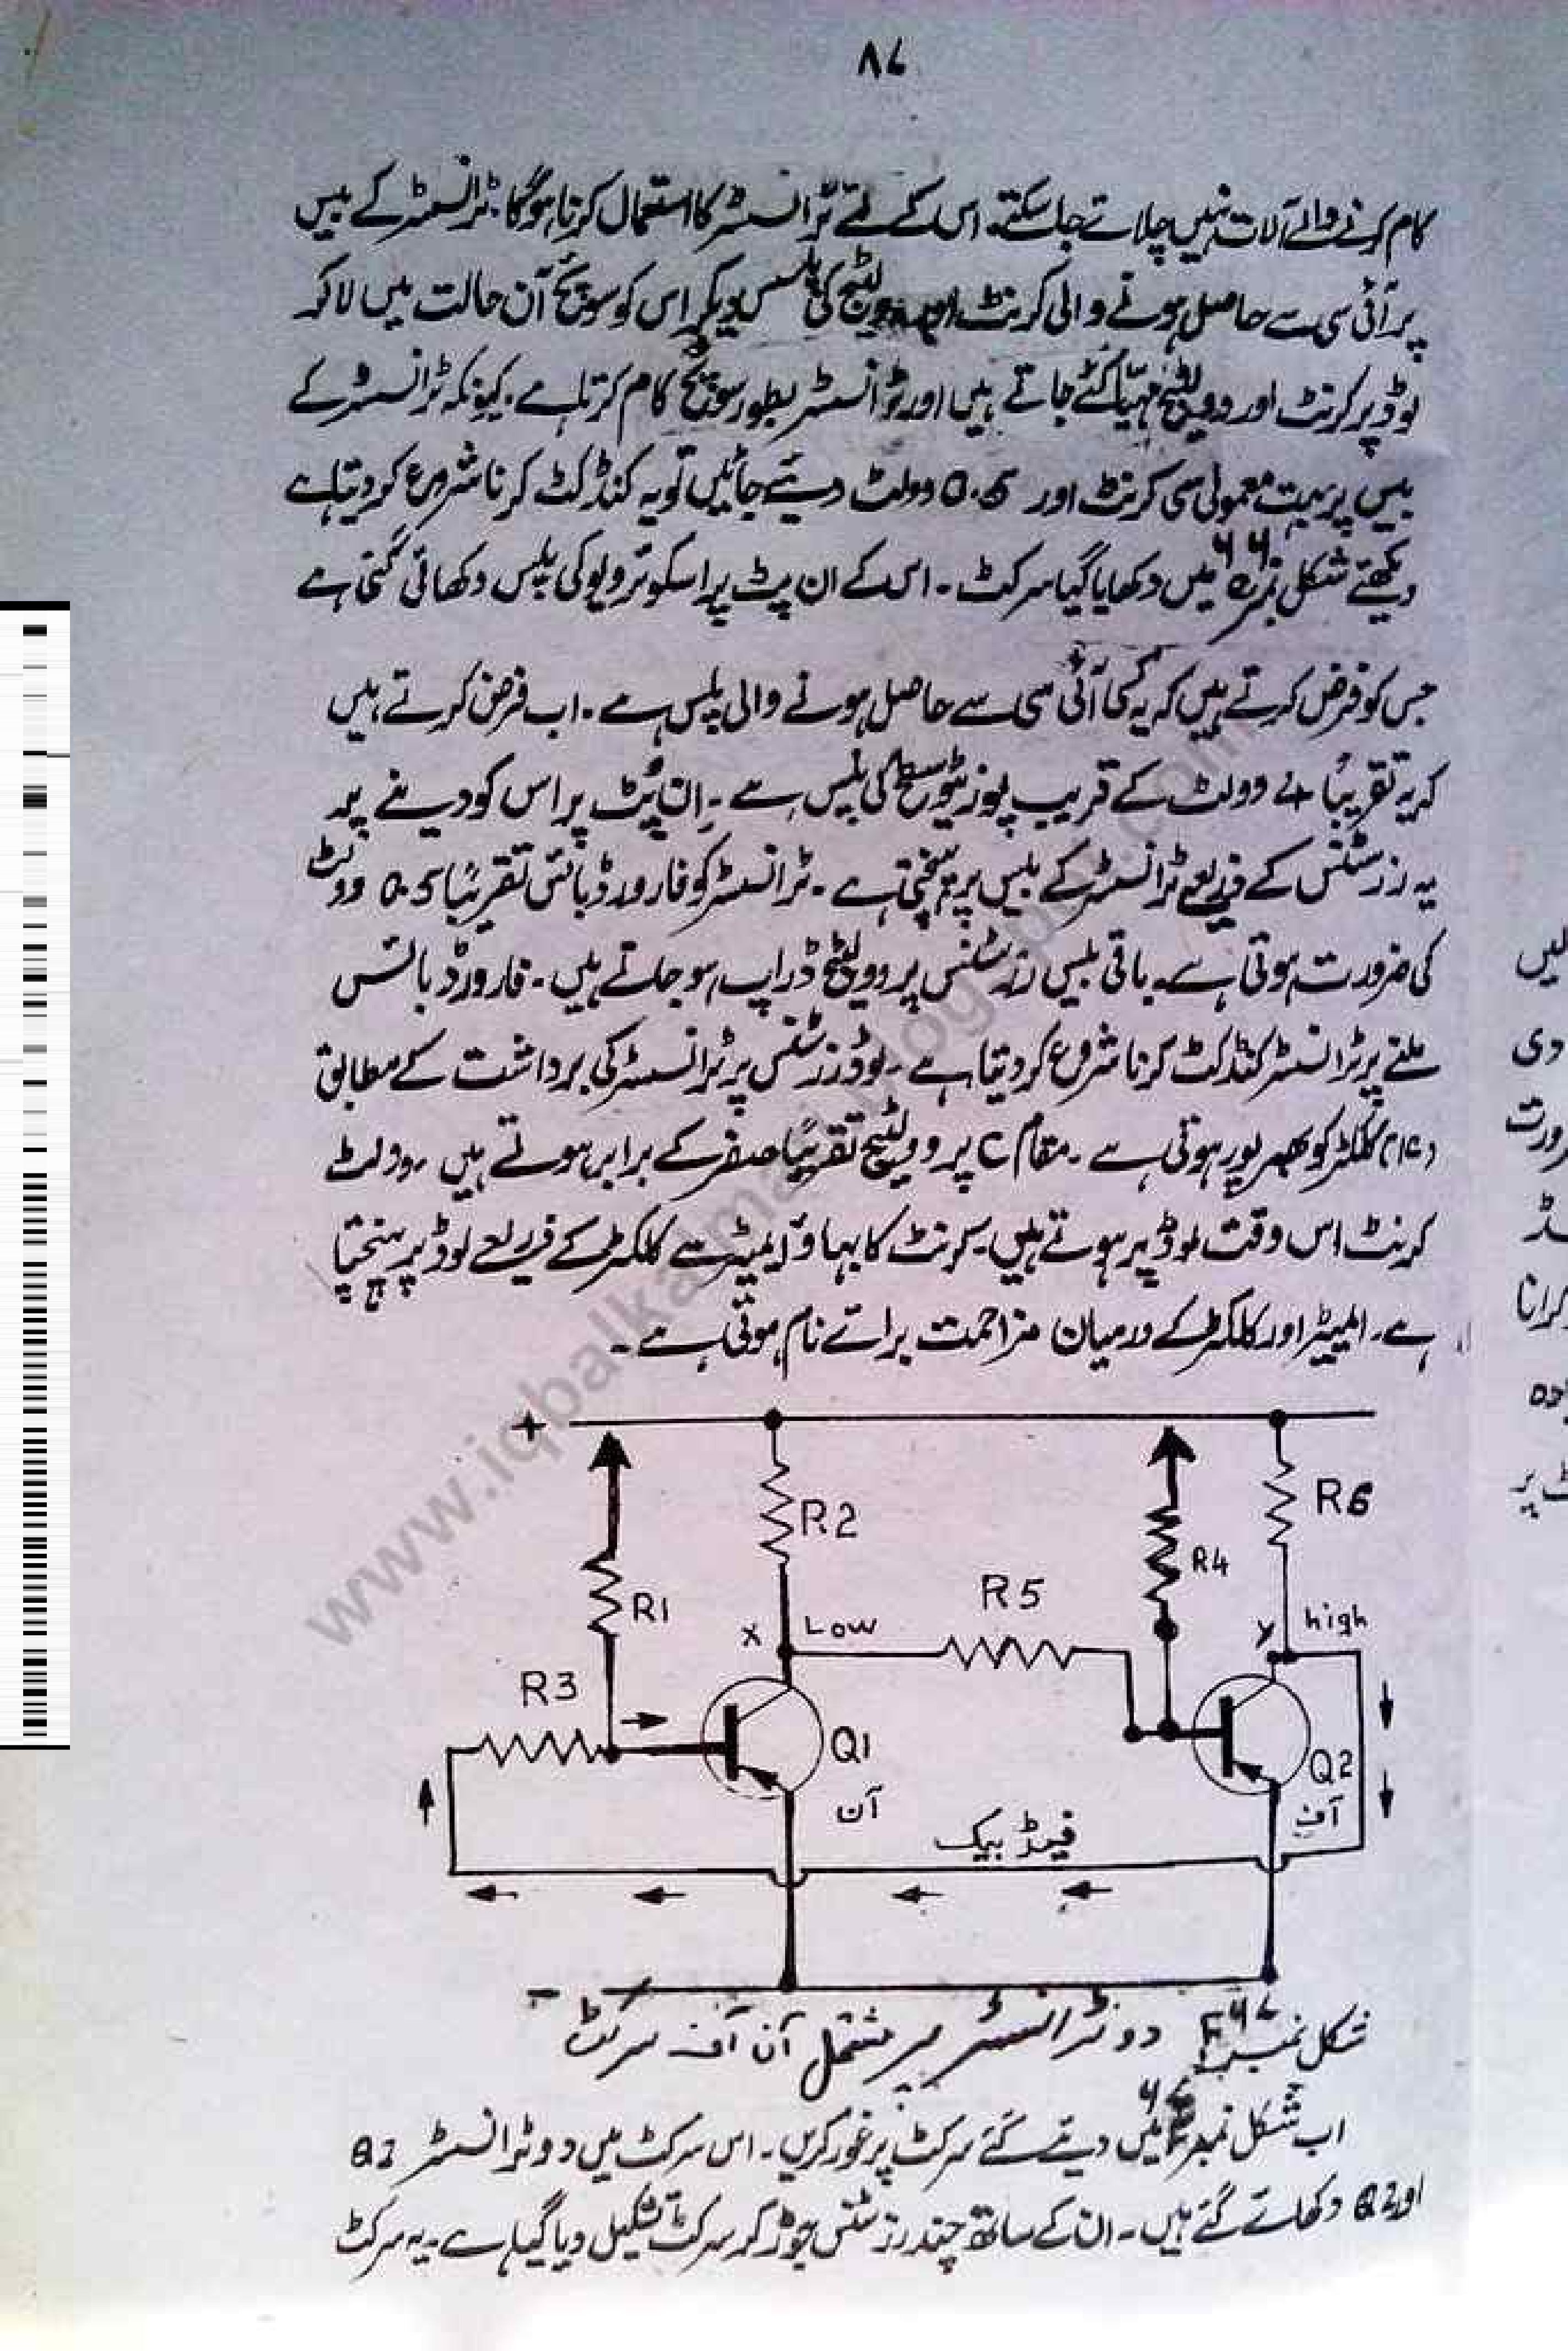 ۸۷
کام کرنے والے آلات نہیں چلائے جا سکتے۔ اس کے لئے ٹرانسسٹر کا استعمال کرنا ہوگا۔ ٹرانسسٹر کے بیس
پر آئی سی سے حاصل ہونے والی کرنٹ اور وولٹیج کی پلس دیکر اس کو سوئچ آن حالت میں لا کر
لوڈ پر کرنٹ اور وولٹیج مہیا کئے جاتے ہیں اور ٹرانسسٹر بطور سوئچ کام کرتا ہے۔ کیونکہ ٹرانسسٹر کے
بیس پر بہت معمولی سی کرنٹ اور 0.5 وولٹ دیئے جائیں تو یہ کنڈکٹ کرنا شروع کر دیتا ہے
دیکھئے شکل نمبر ۶۶ میں دکھایا گیا سرکٹ۔ اس کے ان پٹ پر اسکوئر ویو کی پلس دکھائی گئی ہے
جس کو فرض کرتے ہیں کہ یہ کسی آئی سی سے حاصل ہونے والی پلس ہے۔ اب فرض کرتے ہیں
کہ یہ تقریباً وولٹ کے قریب پوزیٹو سطح کی پلس ہے۔ ان پُٹ پر اس کو دینے پر
یہ رزسٹنس کے ذریعے ٹرانسسٹر کے بیس پر پہنچتی ہے۔ ٹرانسسٹر کو فارورڈ بائس تقریباً 0.5 وولٹ
کی ضرورت ہوتی ہے۔ باقی بیس رزسٹنس پر وولٹیج ڈراپ ہو جاتے ہیں۔ فارورڈ بائس
ملنے پر ٹرانسسٹر کنڈکٹ کرنا شروع کر دیتا ہے۔ لوڈ رزسٹنس پر ٹرانسسٹر کی برداشت کے مطابق
کلکٹر کو بھرپور ہوتی ہے۔ مقام C پر وولٹیج تقریباً صفر کے برابر ہوتے ہیں۔ وولٹ
کرنٹ اس وقت لوڈ پر ہوتے ہیں۔ کرنٹ کا بہاؤ ایمیٹر سے کلکٹر کے ذریعے لوڈ پر پہنچتا
ہے۔ ایمیٹر اور کلکٹر کے درمیان مزاحمت برائے نام ہوتی ہے۔
+
R2
R6
R4
R1
R5
X Low
Y high
R3
Q1
آن
Q2
آف
فیڈ بیک
−
شکل نمبر ۶۷ دو ٹرانسسٹر پر مشتمل آن آف سرکٹ
اب شکل نمبر ۶۷ میں دیئے گئے سرکٹ پر غور کریں۔ اس سرکٹ میں دو ٹرانسسٹر Q2
اور Q2 دکھائے گئے ہیں۔ ان کے ساتھ چند رزسٹنس جوڑ کر سرکٹ تشکیل دیا گیا ہے۔ یہ سرکٹ
www.iqbalkamal.blogspot.com